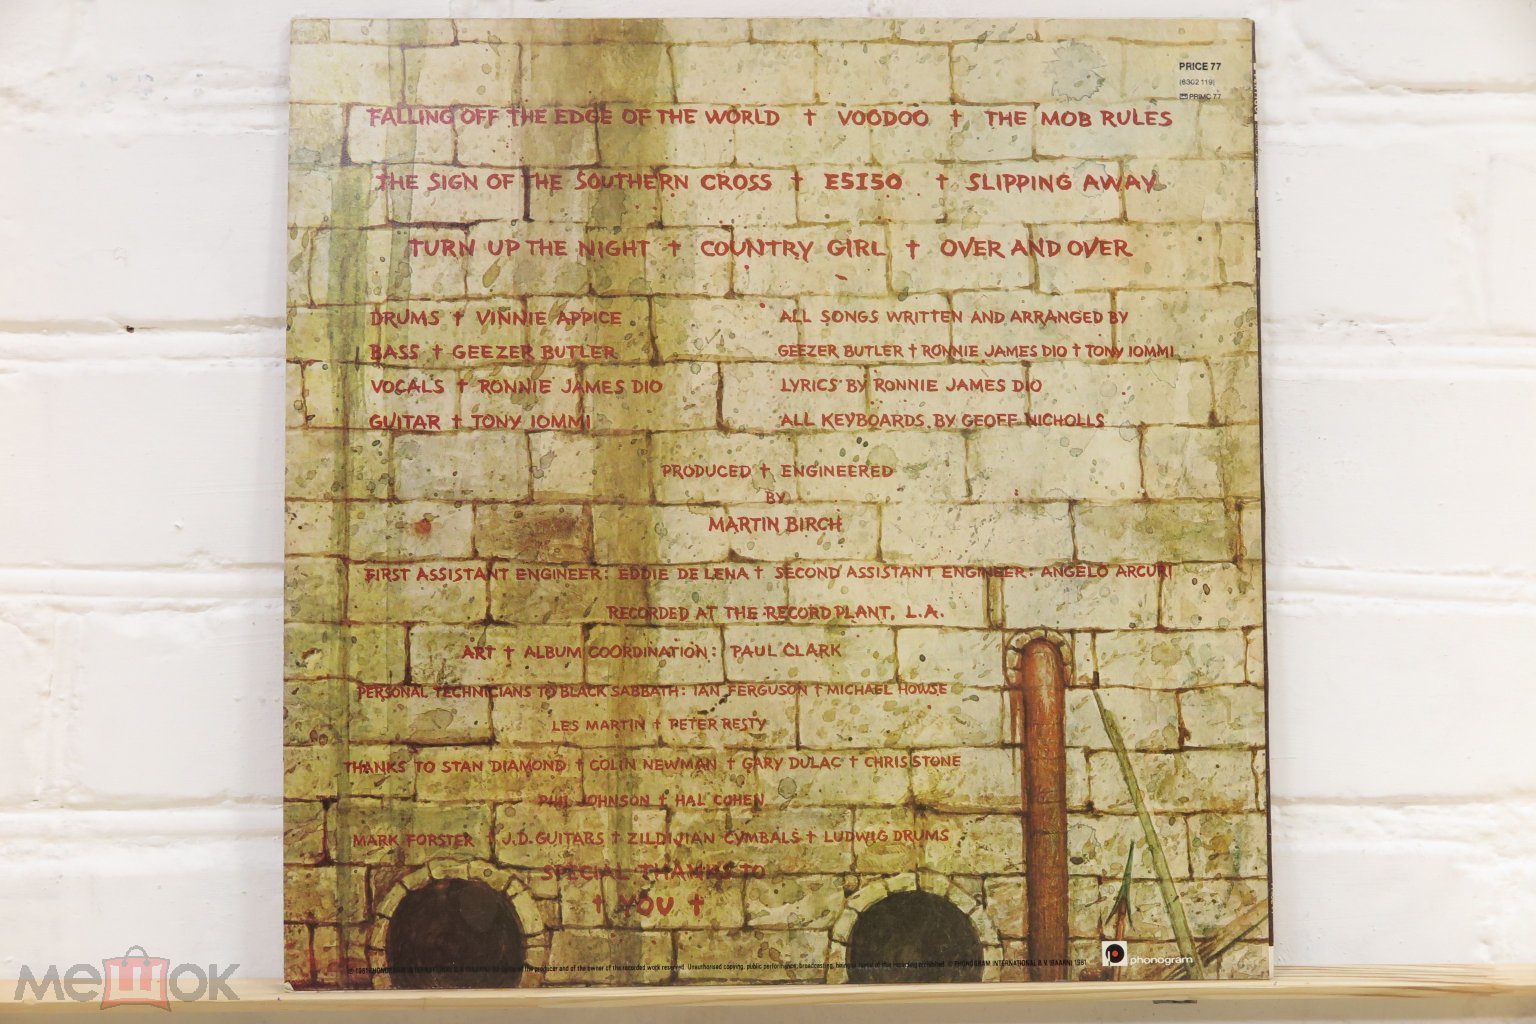 PRICE 77
(6302 119)
PRIMC 77
FALLING OFF THE EDGE OF THE WORLD † VOODOO † THE MOB RULES
THE SIGN OF THE SOUTHERN CROSS † E5150 † SLIPPING AWAY
TURN UP THE NIGHT † COUNTRY GIRL † OVER AND OVER
DRUMS † VINNIE APPICE
BASS † GEEZER BUTLER
VOCALS † RONNIE JAMES DIO
GUITAR † TONY IOMMI
ALL SONGS WRITTEN AND ARRANGED BY
GEEZER BUTLER † RONNIE JAMES DIO † TONY IOMMI
LYRICS BY RONNIE JAMES DIO
ALL KEYBOARDS BY GEOFF NICHOLLS
PRODUCED † ENGINEERED
BY
MARTIN BIRCH
FIRST ASSISTANT ENGINEER: EDDIE DE LENA † SECOND ASSISTANT ENGINEER: ANGELO ARCURI
RECORDED AT THE RECORD PLANT, L.A.
ART † ALBUM COORDINATION: PAUL CLARK
PERSONAL TECHNICIANS TO BLACK SABBATH: IAN FERGUSON † MICHAEL HOWSE
LES MARTIN † PETER RESTY
THANKS TO STAN DIAMOND † COLIN NEWMAN † GARY DULAC † CHRIS STONE
PHIL JOHNSON † HAL COHEN
MARK FORSTER † J.D. GUITARS † ZILDIJIAN CYMBALS † LUDWIG DRUMS
SPECIAL THANKS TO
† YOU †
producer and of the owner of the recorded work reserved. Unauthorised copying, public performance, broadcasting, PHONOGRAM INTERNATIONAL B.V. (BAARN) 1981
phonogram
мешок